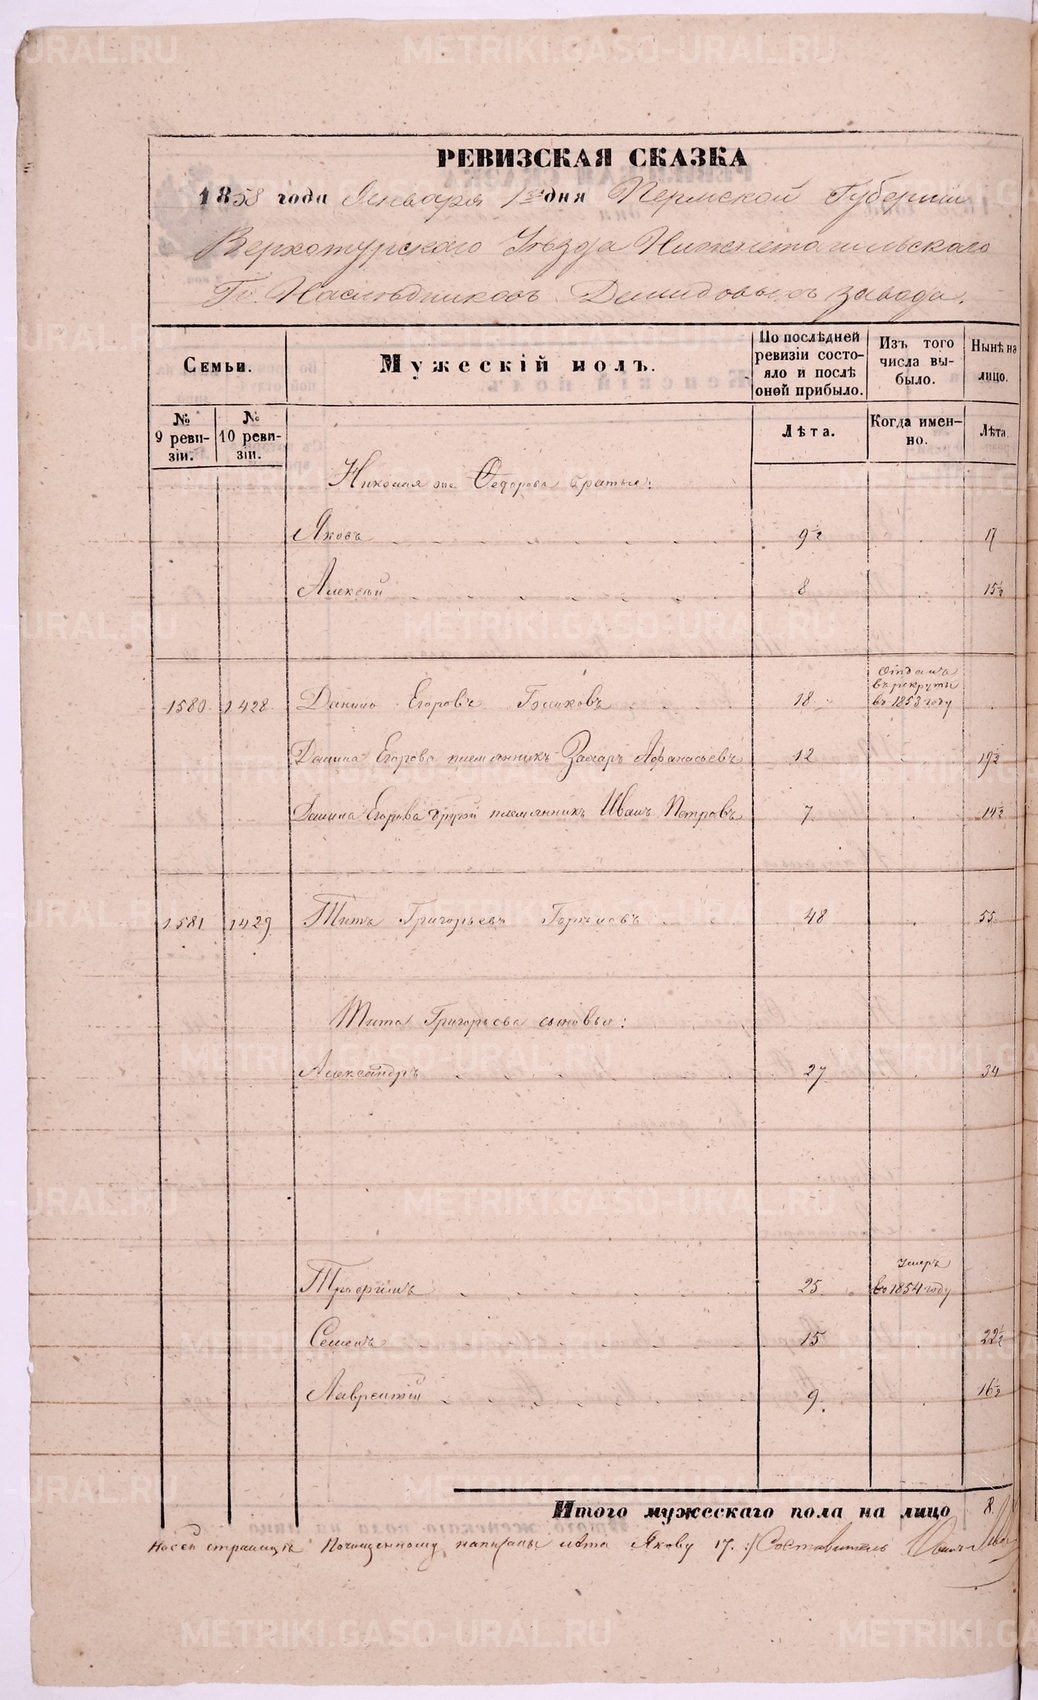 РЕВИЗСКАЯ СКАЗКА
1858 года Января 1го дня Пермской Губернии
Верхотурскаго Уѣзда Нижнетагильскаго
Гг. Наслѣдниковъ Демидовыхъ завода.
Семьи.
Мужескій полъ.
По послѣдней ревизіи состояло и послѣ оной прибыло.
Изъ того числа выбыло.
Нынѣ на лицо.
№ 9 ревизіи.
№ 10 ревизіи.
Лѣта.
Когда именно.
Лѣта.
Николая Федорова братья:
Яковъ 9½ 17
Алексѣй 8 15½
1580 1428 Данило Егоровъ 18 Отданъ въ рекруты въ 1853 году
Данила Егорова племянникъ Захаръ Афанасьевъ 12 19½
Данила Егорова другой племянникъ Иванъ Петровъ 7 14½
1581 1429 Титъ Григорьевъ 48 55
Тита Григорьева сыновья:
Александръ 27 34
Трефилъ 25 умеръ въ 1854 году
Семенъ 15 22½
Лаврентій 9 16½
Итого мужескаго пола на лицо 8.
На сей страницѣ по чищенному написаны лѣта Якову 17. Составитель Иванъ
METRIKI.GASO-URAL.RU